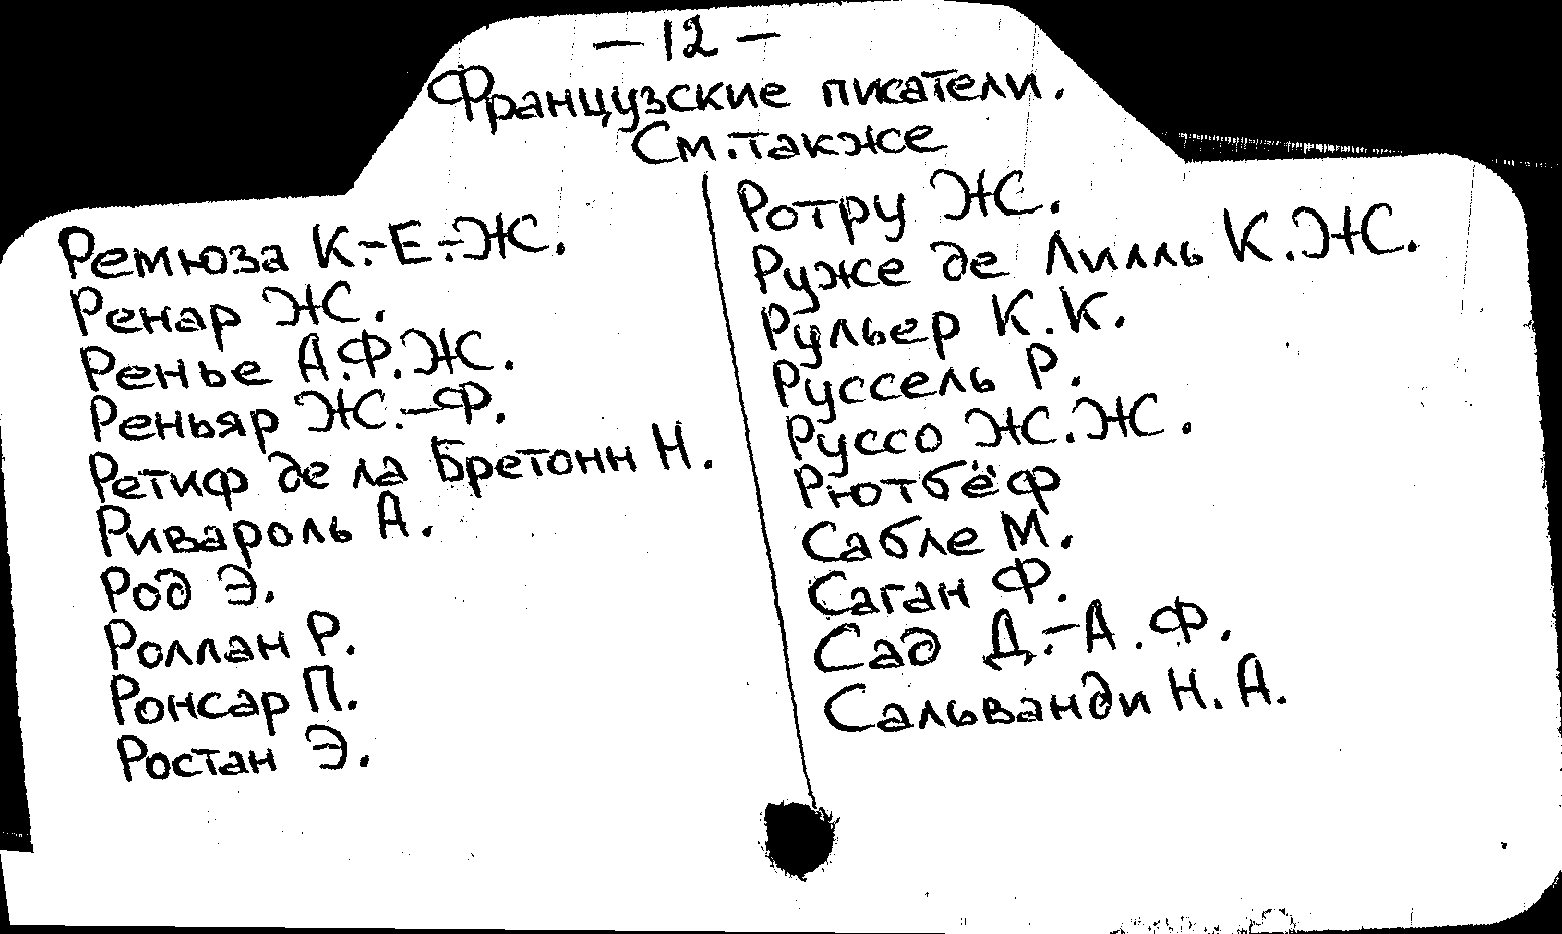 — 12 —
Французские писатели.
См. также
Ремюза К.-Е.-Ж.
Ренар Ж.
Ренье А.Ф.Ж.
Реньяр Ж.-Ф.
Ретиф де ла Бретонн Н.
Ривароль А.
Род Э.
Роллан Р.
Ронсар П.
Ростан Э.
Ротру Ж.
Руже де Лилль К.Ж.
Рульер К.К.
Руссель Р.
Руссо Ж.Ж.
Рютбёф
Сабле М.
Саган Ф.
Сад Д.-А.Ф.
Сальванди Н.А.